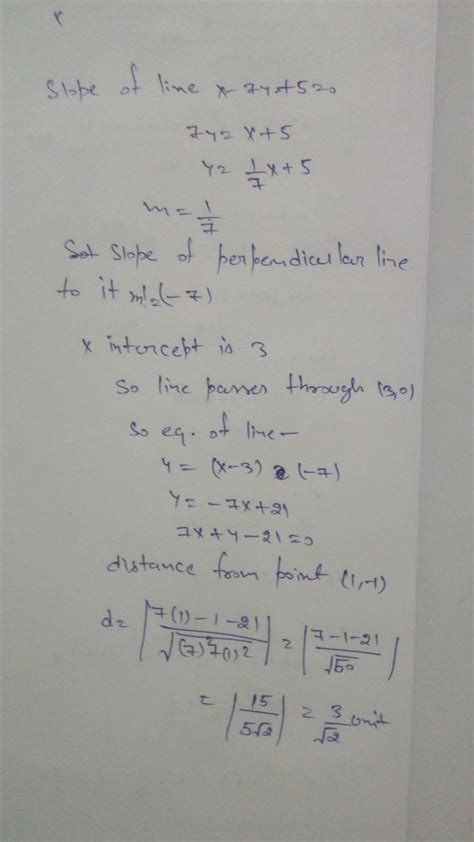 Slope of line x-7y+5=0
7y = x+5
y = 1/7 x+5
m = 1/7
Slope of perpendicular line
to it m' = (-7)
x intercept is 3
So line passes through (3,0)
So eq. of line -
y = (x-3) (-7)
y = -7x+21
7x+y-21=0
distance from point (1,-1)
d= |7(1)-1-21 / √(7)²+(1)²| = |7-1-21 / √50|
= |15 / 5√2| = 3/√2 unit